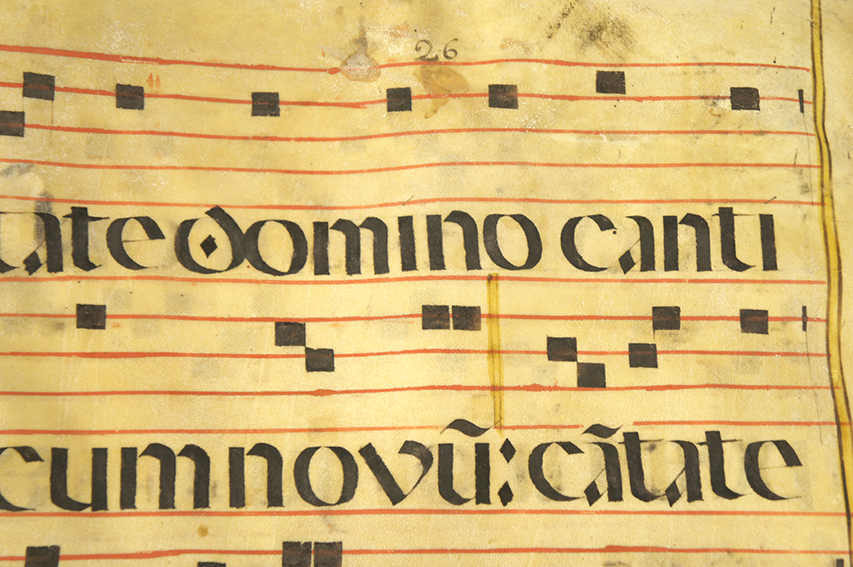 26
tate domino canti
cum novũ: cãtate